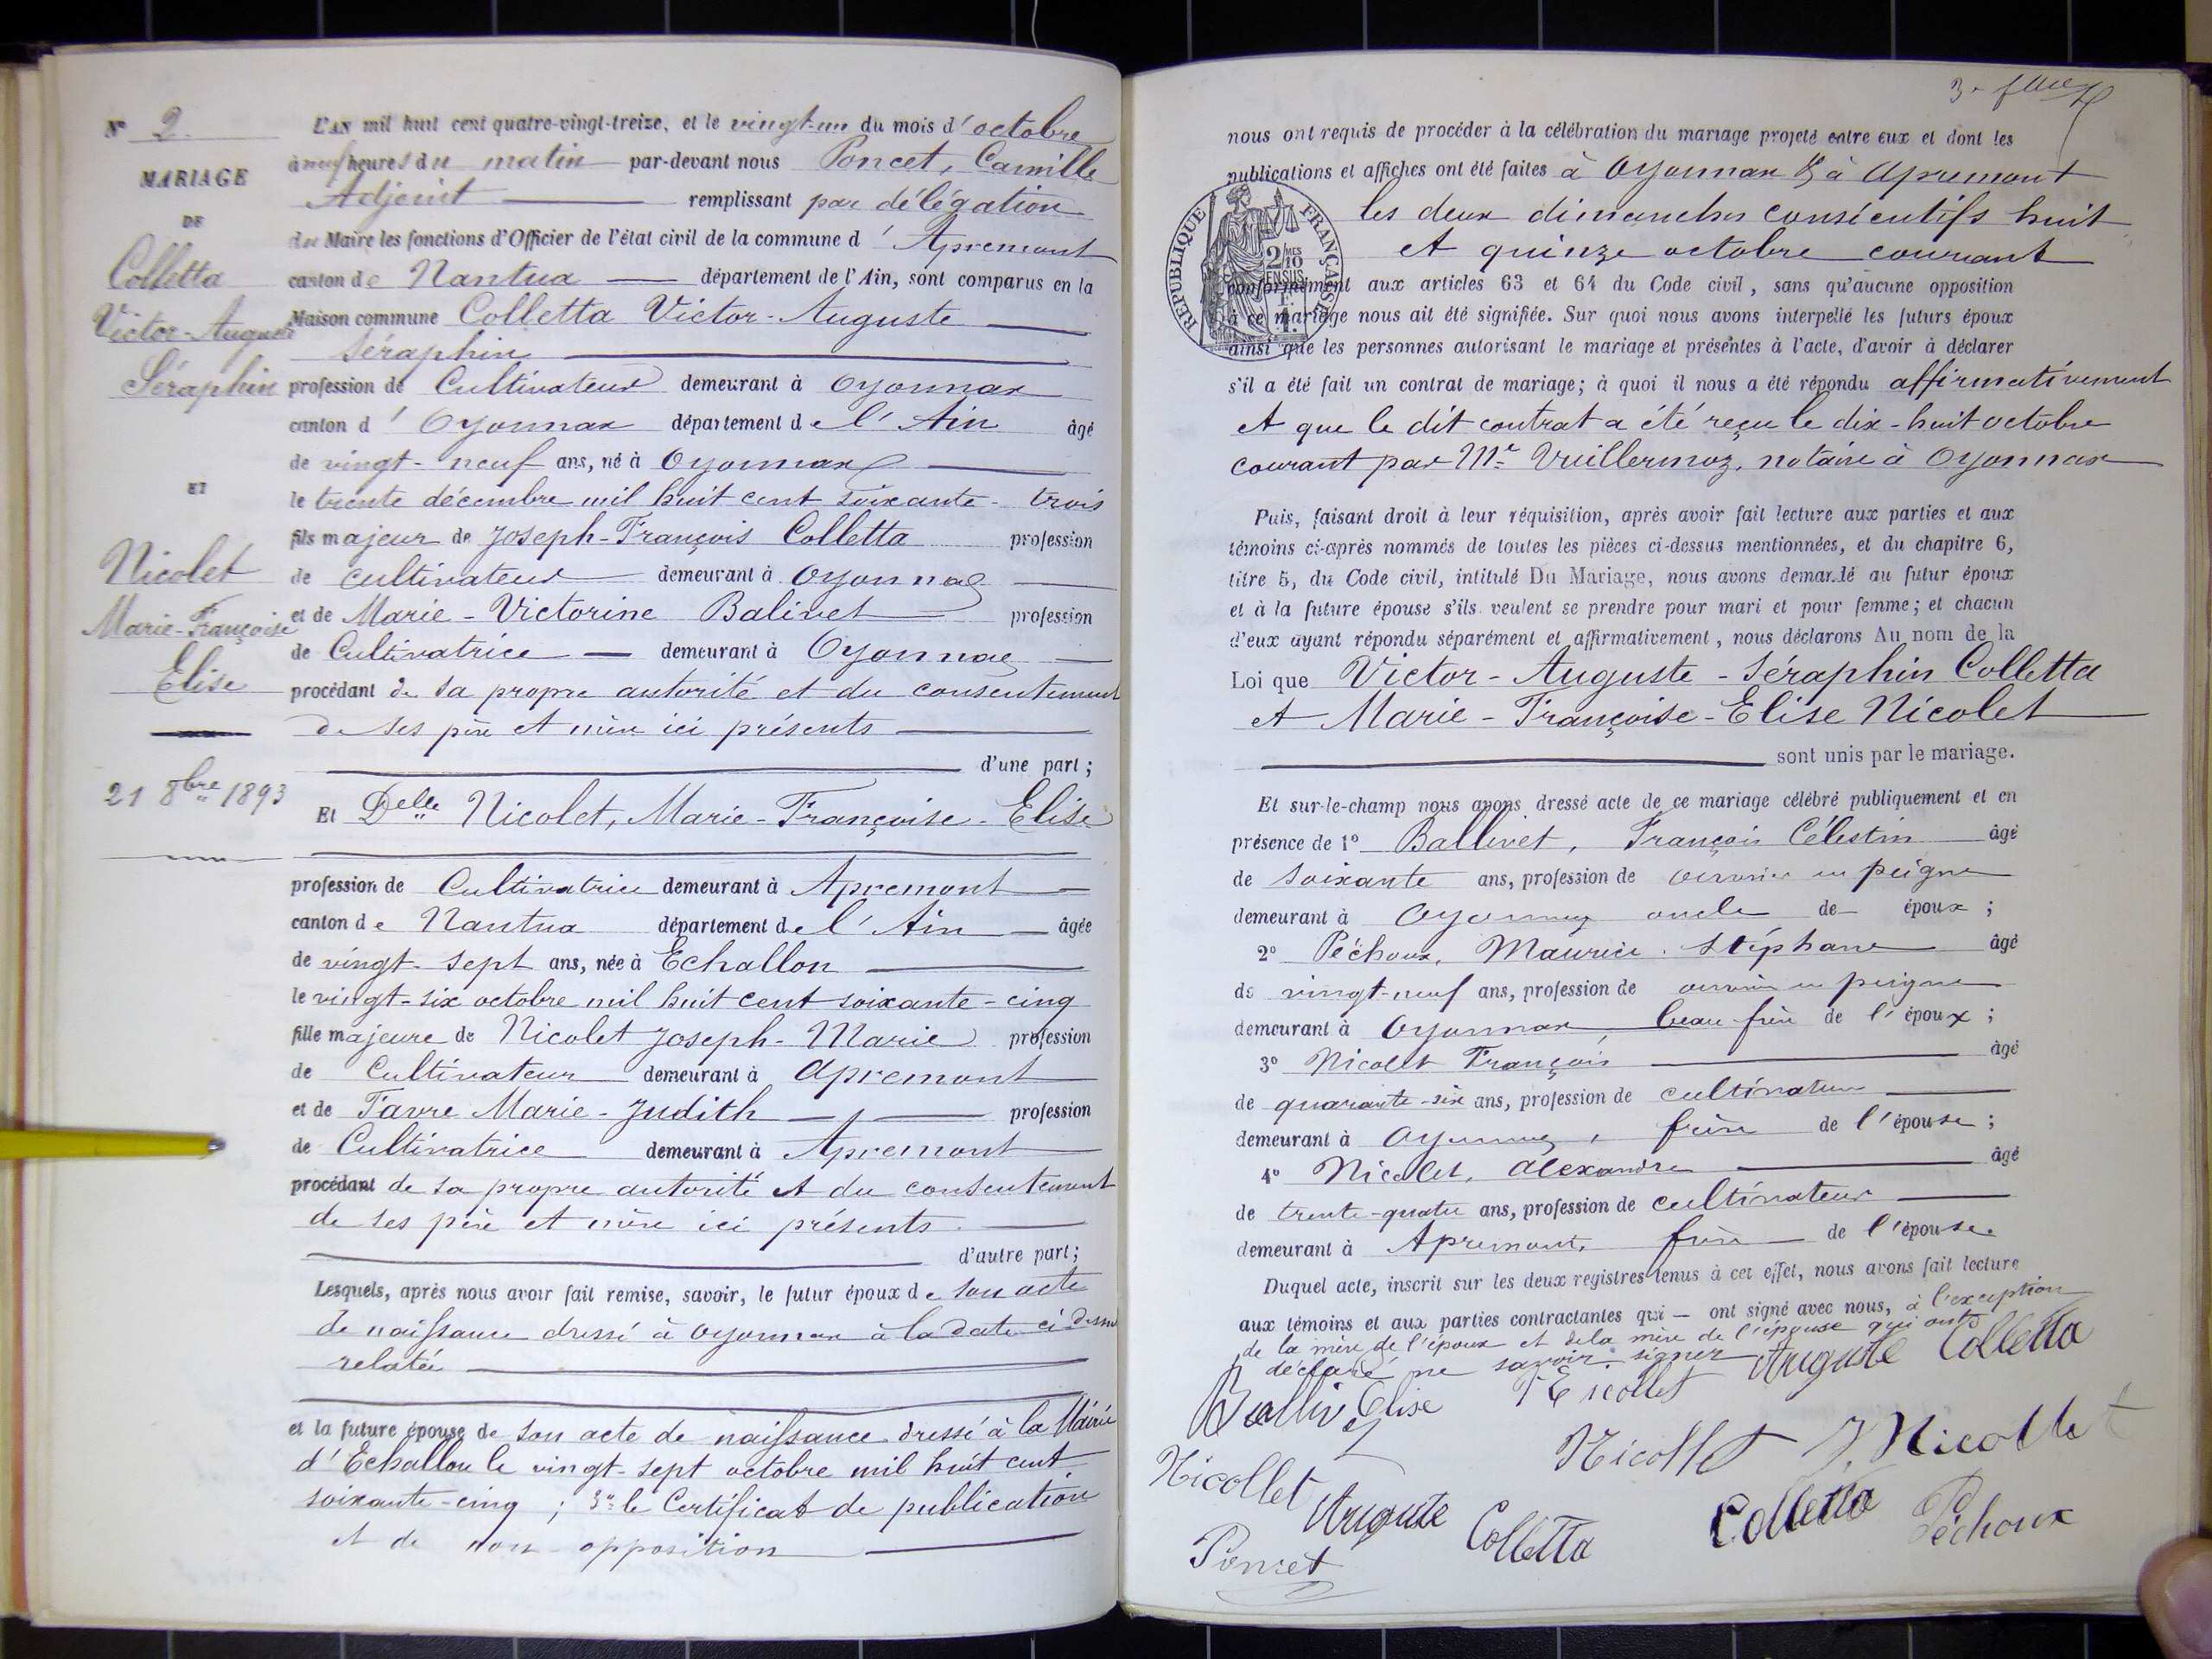 N° 2
MARIAGE
DE
Colletta
Victor-Auguste
Séraphin
ET
Nicolet
Marie-Françoise
Elise
21 8bre 1893
L'AN mil huit cent quatre-vingt-treize, et le vingt-un du mois d'octobre
à neuf heures du matin par-devant nous Poncet, Camille
Adjoint remplissant par délégation
du Maire les fonctions d'Officier de l'état civil de la commune d'Apremont
canton de Nantua département de l'Ain, sont comparus en la
Maison commune Colletta Victor-Auguste
Séraphin
profession de Cultivateur demeurant à Oyonnax
canton d'Oyonnax département de l'Ain âgé
de vingt-neuf ans, né à Oyonnax
le trente décembre mil huit cent soixante-trois
fils majeur de Joseph-François Colletta profession
de cultivateur demeurant à Oyonnax
et de Marie-Victorine Balivet profession
de Cultivatrice demeurant à Oyonnax
procédant de sa propre autorité et du consentement
de ses père et mère ici présents
d'une part;
Et Delle Nicolet, Marie-Françoise-Elise
profession de Cultivatrice demeurant à Apremont
canton de Nantua département de l'Ain âgée
de vingt-sept ans, née à Echallon
le vingt-six octobre mil huit cent soixante-cinq
fille majeure de Nicolet Joseph-Marie profession
de Cultivateur demeurant à Apremont
et de Favre Marie-Judith profession
de Cultivatrice demeurant à Apremont
procédant de sa propre autorité et du consentement
de ses père et mère ici présents.
d'autre part;
Lesquels, après nous avoir fait remise, savoir, le futur époux de son acte
de naissance dressé à Oyonnax à la date ci dessus
relatée
et la future épouse de son acte de naissance dressé à la Mairie
d'Echallon le vingt-sept octobre mil huit cent
soixante-cinq; 3° le Certificat de publication
et de non opposition
nous ont requis de procéder à la célébration du mariage projeté entre eux et dont les
publications et affiches ont été faites à Oyonnax & à Apremont
les deux dimanches consécutifs huit
et quinze octobre courant
RÉPUBLIQUE FRANÇAISE
conformément aux articles 63 et 64 du Code civil, sans qu'aucune opposition
à ce mariage nous ait été signifiée. Sur quoi nous avons interpellé les futurs époux
ainsi que les personnes autorisant le mariage et présentes à l'acte, d'avoir à déclarer
s'il a été fait un contrat de mariage; à quoi il nous a été répondu affirmativement
et que le dit contrat a été reçu le dix-huit octobre
courant par Me Vuillermoz, notaire à Oyonnax
Puis, faisant droit à leur réquisition, après avoir fait lecture aux parties et aux
témoins ci-après nommés de toutes les pièces ci-dessus mentionnées, et du chapitre 6,
titre 5, du Code civil, intitulé Du Mariage, nous avons demandé au futur époux
et à la future épouse s'ils veulent se prendre pour mari et pour femme; et chacun
d'eux ayant répondu séparément et affirmativement, nous déclarons Au nom de la
Loi que Victor-Auguste-Séraphin Colletta
et Marie-Françoise-Elise Nicolet
sont unis par le mariage.
Et sur-le-champ nous avons dressé acte de ce mariage célébré publiquement et en
présence de 1° Ballivet, François Célestin âgé
de soixante ans, profession de ouvrier en peigne
demeurant à Oyonnax oncle de époux;
2° Péchoux, Maurice Stéphane âgé
de vingt-neuf ans, profession de ouvrier en peigne
demeurant à Oyonnax, beau-frère de l'époux;
3° Nicolet François âgé
de quarante-six ans, profession de cultivateur
demeurant à Oyonnax, frère de l'épouse;
4° Nicolet, Alexandre âgé
de trente-quatre ans, profession de cultivateur
demeurant à Apremont, frère de l'épouse.
Duquel acte, inscrit sur les deux registres tenus à cet effet, nous avons fait lecture
aux témoins et aux parties contractantes qui ont signé avec nous, à l'exception
de la mère de l'époux et de la mère de l'épouse qui ont
déclaré ne savoir signer Auguste Colletta
Elise Nicollet
Nicollet J. Nicollet
Nicollet Auguste Colletta Colletta Péchoux
Poncet